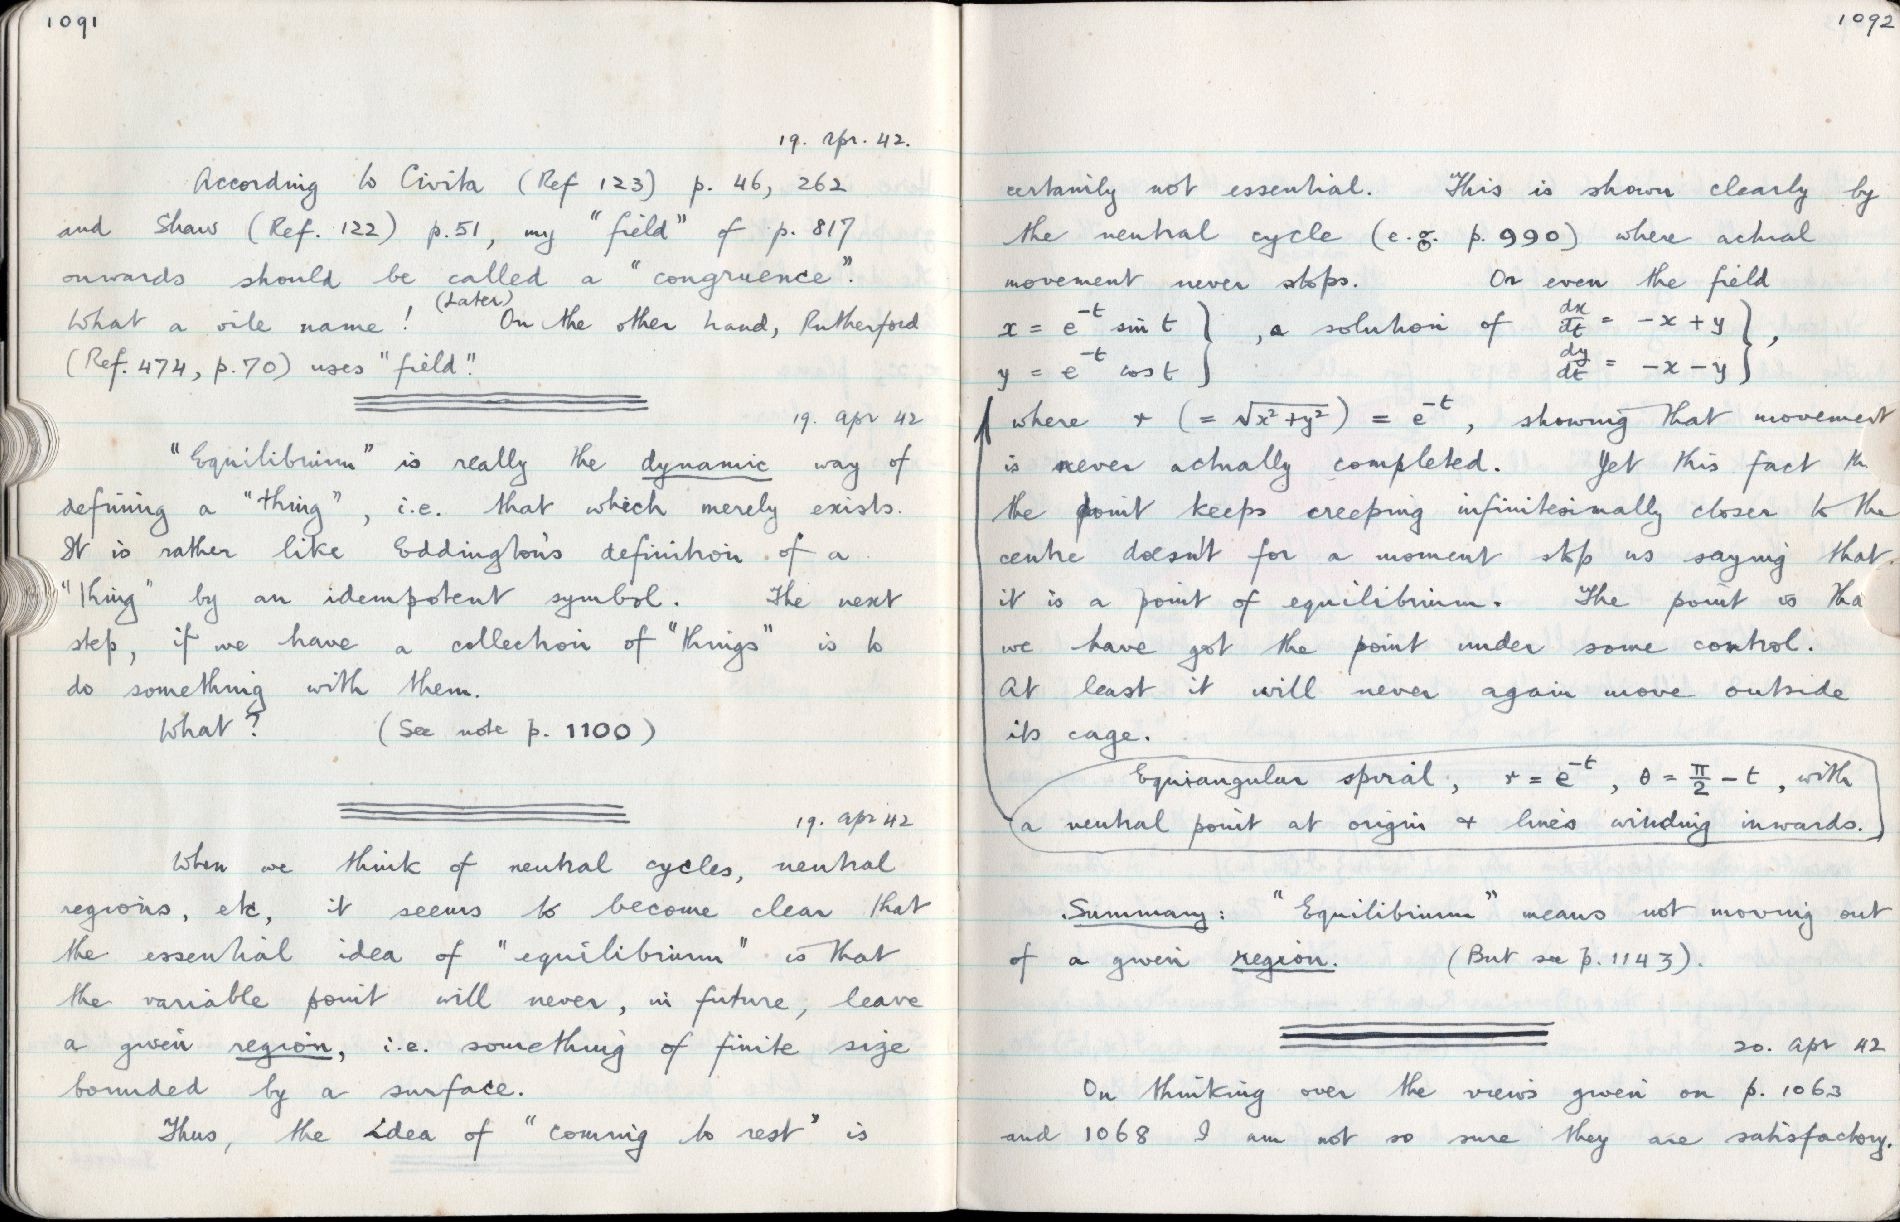 1091
19. Apr. 42.
According to Civita (Ref 123) p. 46, 262
and Shaw (Ref. 122) p.51, my "field" of p. 817
onwards should be called a "congruence".
What a vile name! (Later) On the other hand, Rutherford
(Ref. 474, p.70) uses "field".
19. Apr 42
"Equilibrium" is really the dynamic way of
defining a "thing", i.e. that which merely exists.
It is rather like Eddington's definition of a
"thing" by an idempotent symbol. The next
step, if we have a collection of "things" is to
do something with them.
What? (See note p. 1100)
19. Apr 42
When we think of neutral cycles, neutral
regions, etc, it seems to become clear that
the essential idea of "equilibrium" is that
the variable point will never, in future, leave
a given region, i.e. something of finite size
bounded by a surface.
Thus, the idea of "coming to rest" is
1092
certainly not essential. This is shown clearly by
the neutral cycle (e.g. p. 990) where actual
movement never stops. Or even the field
x = e^{-t} sin t }, a solution of dx/dt = -x + y },
y = e^{-t} cos t } dy/dt = -x - y }
where r (= √x²+y²) = e^{-t}, showing that movement
is never actually completed. Yet this fact th
the point keeps creeping infinitesimally closer to the
centre doesn't for a moment stop us saying that
it is a point of equilibrium. The point is tha
we have got the point under some control.
At least it will never again move outside
its cage.
Equiangular spiral, r = e^{-t}, θ = π/2 - t, with
a neutral point at origin + lines winding inwards.
Summary: "Equilibrium" means not moving out
of a given region. (But see p. 1143).
20. Apr 42
On thinking over the views given on p. 1063
and 1068 I am not so sure they are satisfactory.